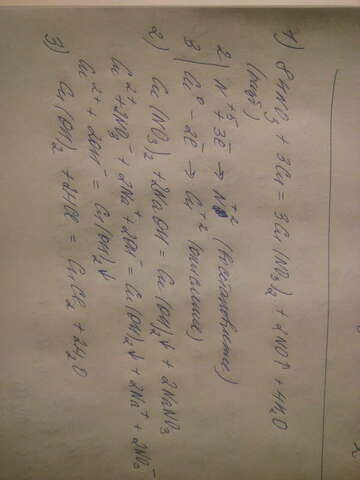 1) 8HNO3 + 3Cu = 3Cu(NO3)2 + 2NO↑ + 4H2O
(разб)
2 | N+5 + 3e̅ → N+2 (восстановление)
3 | Cu0 - 2e̅ → Cu+2 (окисление)
2) Cu(NO3)2 + 2NaOH = Cu(OH)2↓ + 2NaNO3
Cu2+ + 2NO3- + 2Na+ + 2OH- = Cu(OH)2↓ + 2Na+ + 2NO3-
Cu2+ + 2OH- = Cu(OH)2↓
3) Cu(OH)2 + 2HCl = CuCl2 + 2H2O